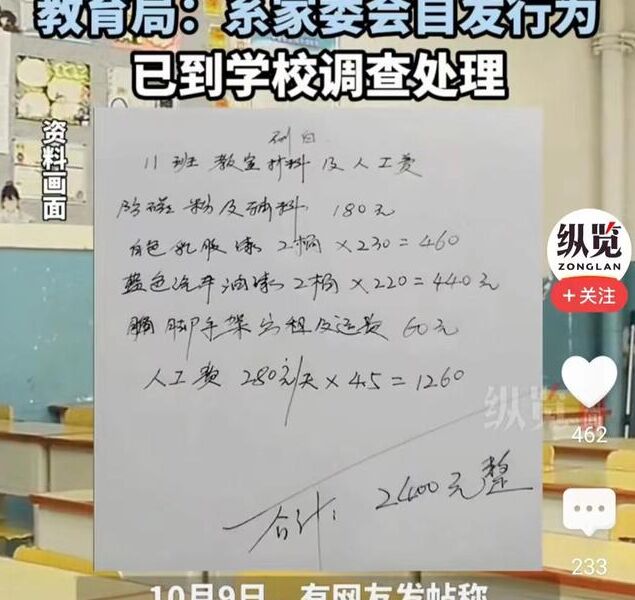 教育局：系家委会自发行为
已到学校调查处理
资料画面
11班 教室材料及人工费
180元
白色乳胶漆 2桶×230=460
蓝色汽车油漆 2桶×220=440元
脚手架出租及运费 60元
人工费 280元/天×4.5=1260
合计：2400元整
纵览
ZONGLAN
+关注
纵览
462
233
10月9日，有网友发帖称